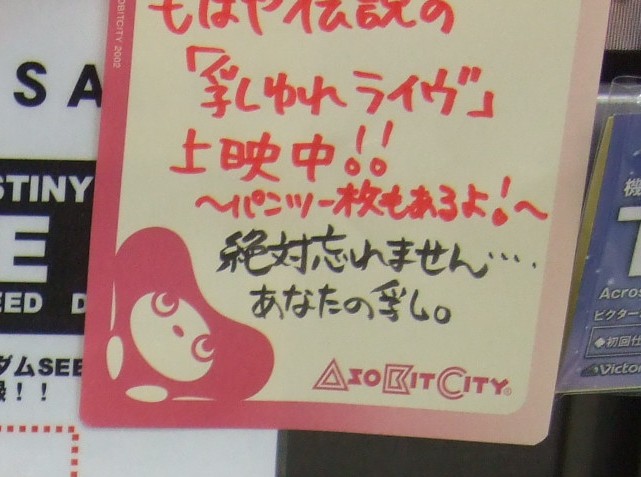 もはや伝説の
「乳ゆれライヴ」
上映中!!
～パンツ一枚もあるよ!～
絶対忘れません‥‥.
あなたの乳。
ASOBITCITY®
OBITCITY 2002
SA
STINY
E
EED D
ダムSEE
!!
機
T
Acros
ビクター
◆初回仕
Victor